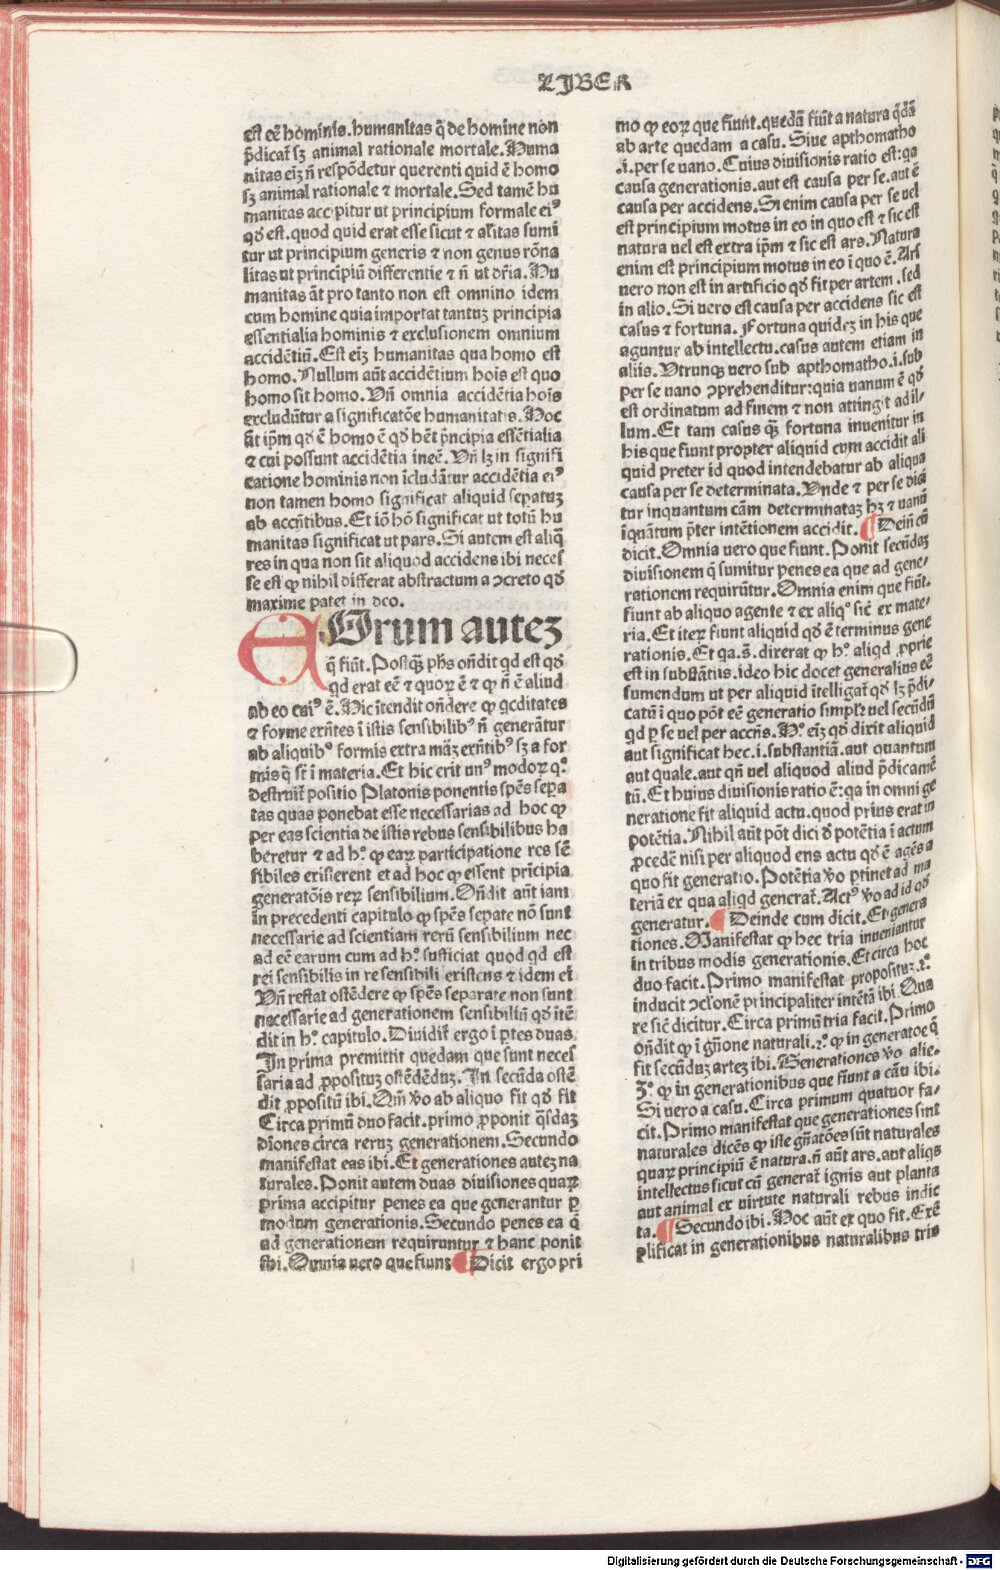 LIBER
est eē hominis. humanitas q̄ de homine non
p̄dicat̄ sꝫ animal rationale mortale. Huma
nitas eiꝫ n̄ respōdetur querenti quid ē homo
sꝫ animal rationale ⁊ mortale. Sed tamē hu
manitas accipitur ut principium formale eiꝰ
qḋ est. quod quid erat esse sicut ⁊ al̄itas sumi
tur ut principium generis ⁊ non genus rōna
litas ut principiū differentie ⁊ n̄ ut dr̄ia. Hu
manitas āt pro tanto non est omnino idem
cum homine quia importat tantuꝫ principia
essentialia hominis ⁊ exclusionem omnium
accidētiū. Est eiꝫ humanitas qua homo est
homo. Nullum aūt accidētium hoīs est quo
homo sit homo. Vn̄ omnia accidētia hoīs
excludūtur a significatōe humanitatis. Hoc
āt ip̄m qḋ ē homo ē qḋ hēt p̄ncipia essētialia
⁊ cui possunt accidētia ineē. Vn̄ lꝫ in signifi
catione hominis non īcludātur accidētia eiꝰ
non tamen homo significat aliquid sepatuꝫ
ab accn̄tibus. Et iō hō significat ut totū hu
manitas significat ut pars. Si autem est aliq̄
res in qua non sit aliquod accidens ibi neces
se est ꝙ nihil differat abstractum a ↄcreto qḋ
maxime patet in deo.
EOrum auteꝫ
q̄ fiūt. Postq̄ꝫ ph̄s on̄dit qd est qḋ
qd erat eē ⁊ quoꝝ ē ⁊ ꝙ n̄ ē aliud
ab eo cuiꝰ ē. Hic ītendit on̄dere ꝙ qcditates
⁊ forme exn̄tes ī istis sensibilibꝰ n̄ generātur
ab aliquibꝰ formis extra māꝫ exn̄tibꝰ sꝫ a for
mis q̄ st̄ ī materia. Et hic erit unꝰ modoꝝ qͦ.
destruit̄ positio Platonis ponentis spēs sepa
tas quas ponebat esse necessarias ad hoc ꝙ
per eas scientia de istis rebus sensibilibus ha
beretur ⁊ ad hͦ. ꝙ eaꝝ participatione res sē
sibiles existerent et ad hoc ꝙ essent pricipia
generatōis reꝝ sensibilium. On̄dit aūt iam
in precedenti capitulo ꝙ spēs sepate nō sunt
necessarie ad scientiam rerū sensibilium nec
ad eē earum cum ad hͦ. sufficiat quod qd est
rei sensibilis in re sensibili existens ⁊ idem ei
Vn̄ restat ostēdere ꝙ spēs separate non sunt
necessarie ad generationem sensibiliū qḋ itē
dit in hͦ. capitulo. Diuidit̄ ergo ī p̄tes duas
In prima premittit quedam que sunt neces
saria ad ꝓpositūꝫ ostēdēduꝫ. In secūda ostē
dit ꝓpositū ibi. Om̄ ꝟo ab aliquo fit qḋ fit
Circa primū duo facit. primo ꝓponit q̄sdaꝫ
dīones circa reruꝫ generationem. Secundo
manifestat eas ibi. Et generationes auteꝫ na
turales. Ponit autem duas diuisiones quaꝝ
prima accipitur penes ea que generantur ꝑ
modum generationis. Secundo penes ea q̄
ad generationem requiruntur ⁊ hanc ponit
ibi. Omnia uero que fiunt ¶ Dicit ergo pri
mo ꝙ eoꝝ que fiunt. quedā fiūt a natura q̄dā
ab arte quedam a casu. Siue apthomatho
.i. per se uano. Cuius diuisionis ratio est: qa
causa generationis. aut est causa per se. aut ē
causa per accidens. Si enim causa per se uel
est principium motus in eo in quo est ⁊ sic est
natura uel est extra ip̄m ⁊ sic est ars. Natura
enim est principium motus in eo ī quo ē. Ars
uero non est in artificio qḋ fit per artem. sed
in alio. Si uero est causa per accidens sic est
casus ⁊ fortuna. Fortuna quideꝫ in his que
aguntur ab intellectu. casus autem etiam in
aliis. Vtrunqꝫ uero sub apthomatho .i. sub
per se uano ↄprehenditur: quia uanum ē qḋ
est ordinatum ad finem ⁊ non attingit ad il-
lum. Et tam casus q̄ꝫ fortuna inuenitur in
his que fiunt propter aliquid cum accidit ali
quid preter id quod intendebatur ab aliqua
causa per se determinata. Vnde ⁊ per se dici
tur inquantum cām determinataꝫ hꝫ ⁊ uanū
īquātum p̄ter intētionem accidit. ¶ Dein̄ cū
dicit. Omnia uero que fiunt. Ponit secūdaꝫ
diuisionem q̄ sumitur penes ea que ad gene-
rationem requirūtur. Omnia enim que fiūt.
fiunt ab aliquo agente ⁊ ex aliqͦ sic̄ ex mate-
ria. Et iteꝝ fiunt aliquid qḋ ē terminus gene
rationis. Et qa. s̄. dixerat ꝙ hͦ. aliqd ꝓprie
est in substātiis. ideo hic docet generalius eē
sumendum ut per aliquid ītelligat̄ qḋ lꝫ p̄di-
catū ī quo pōt eē generatio simpl̄r uel secūdū
qd ꝑ se uel per accn̄s. Hͦ. eiꝫ qḋ dixit aliquid
aut significat hec .i. substantiā. aut quantum
aut quale. aut qn̄ uel aliquod aliud p̄dicamē
tū. Et huius diuisionis ratio ē: qa in omni ge
neratione fit aliquid actu. quod prius erat in
potētia. Nihil aūt pōt dici ḋ potētia ī actum
ꝓcedē nisi per aliquod ens actu qḋ ē agēs a
quo fit generatio. Potētia ꝟo ptinet ad ma
teriā ex qua aliqd generat̄. Actꝰ ꝟo ad id qḋ
generatur. ¶ Deinde cum dicit. Et genera
tiones. Manifestat ꝙ hec tria inueniantur
in tribus modis generationis. Et circa hoc
duo facit. Primo manifestat propositūꝫ. 2ͦ.
inducit ↄclōnē principaliter intētā ibi. Qua
re sic̄ dicitur. Circa primū tria facit. Primo
on̄dit ꝙ ī gn̄one naturali. 2ͦ. ꝙ in generatōe q̄
fit secūduꝫ arteꝫ ibi. Generationes ꝟo alie-
3ͦ. ꝙ in generationibus que fiunt a casu ibi.
Si uero a casu. Circa primum quatuor fa-
cit. Primo manifestat que generationes sint
naturales dicēs ꝙ iste gn̄atōes sūt naturales
quaꝝ principiū ē natura. n̄ aūt ars. aut aliqs
intellectus sicut cū generat̄ ignis aut planta
aut animal ex uirtute naturali rebus indic
ta. ¶ Secundo ibi. Hoc aūt ex quo fit. Exē
plificat in generationibus naturalibus tria
Digitalisierung gefördert durch die Deutsche Forschungsgemeinschaft - DFG